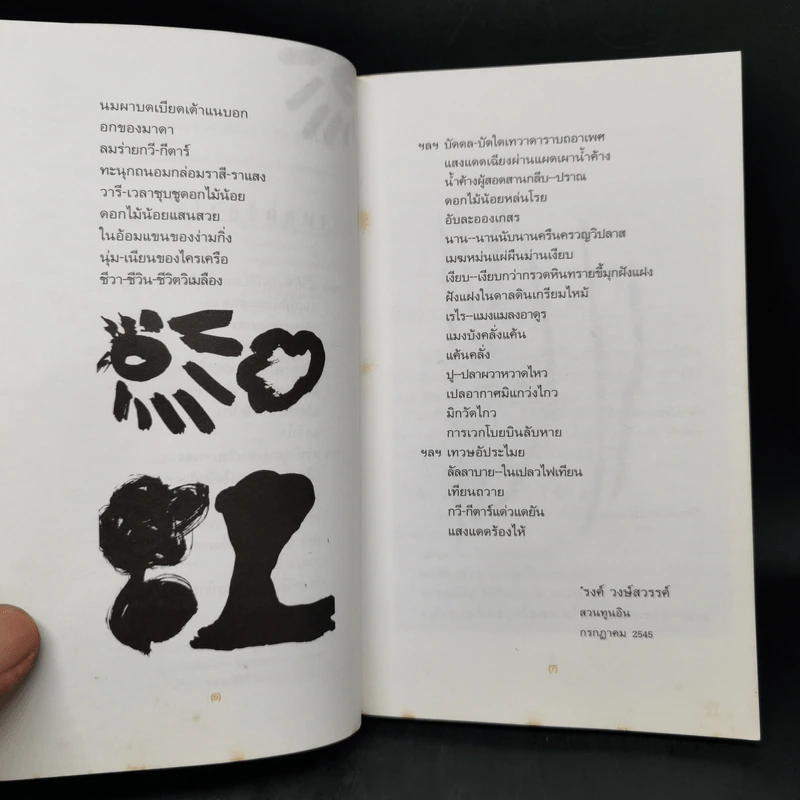 นมผาบดเบียดเต้าแนบอก
อกของมาดา
ลมร่ายกวี-กีตาร์
ทะนุกถนอมกล่อมราสี-ราแสง
วารี-เวลาชุบชูดอกไม้น้อย
ดอกไม้น้อยแสนสวย
ในอ้อมแขนของง่ามกิ่ง
นุ่ม-เนียนของไครเครือ
ชีวา-ชีวิน-ชีวิตวิเมลือง
(6)
ฯลฯ บัดดล-บัดใดเทวาดาราบถอาเพศ
แสงแดดเฉียงผ่านแผดเผาน้ำค้าง
น้ำค้างผู้สอดสานกลีบ--ปราณ
ดอกไม้น้อยหล่นโรย
อับละอองเกสร
นาน--นานนับนานครืนครวญวิปลาส
เมฆหม่นแผ่ผืนม่านเงียบ
เงียบ--เงียบกว่ากรวดหินทรายขี้มุกฝังแฝง
ฝังแฝงในดาลดินเกรียมไหม้
เรไร--แมงแมลงอาดูร
แมงบังคลั่งแค้น
แค้นคลั่ง
ปู--ปลาผวาหวาดไหว
เปลอากาศมิแกว่งไกว
มิกวัดไกว
การเวกโบยบินลับหาย
ฯลฯ เทวษอัประไมย
ลัลลาบาย--ในเปลวไฟเทียน
เทียนถวาย
กวี-กีตาร์แด่วแดยัน
แสงแดดร้องไห้
'รงค์ วงษ์สวรรค์
สวนทูนอิน
กรกฎาคม 2545
(7)